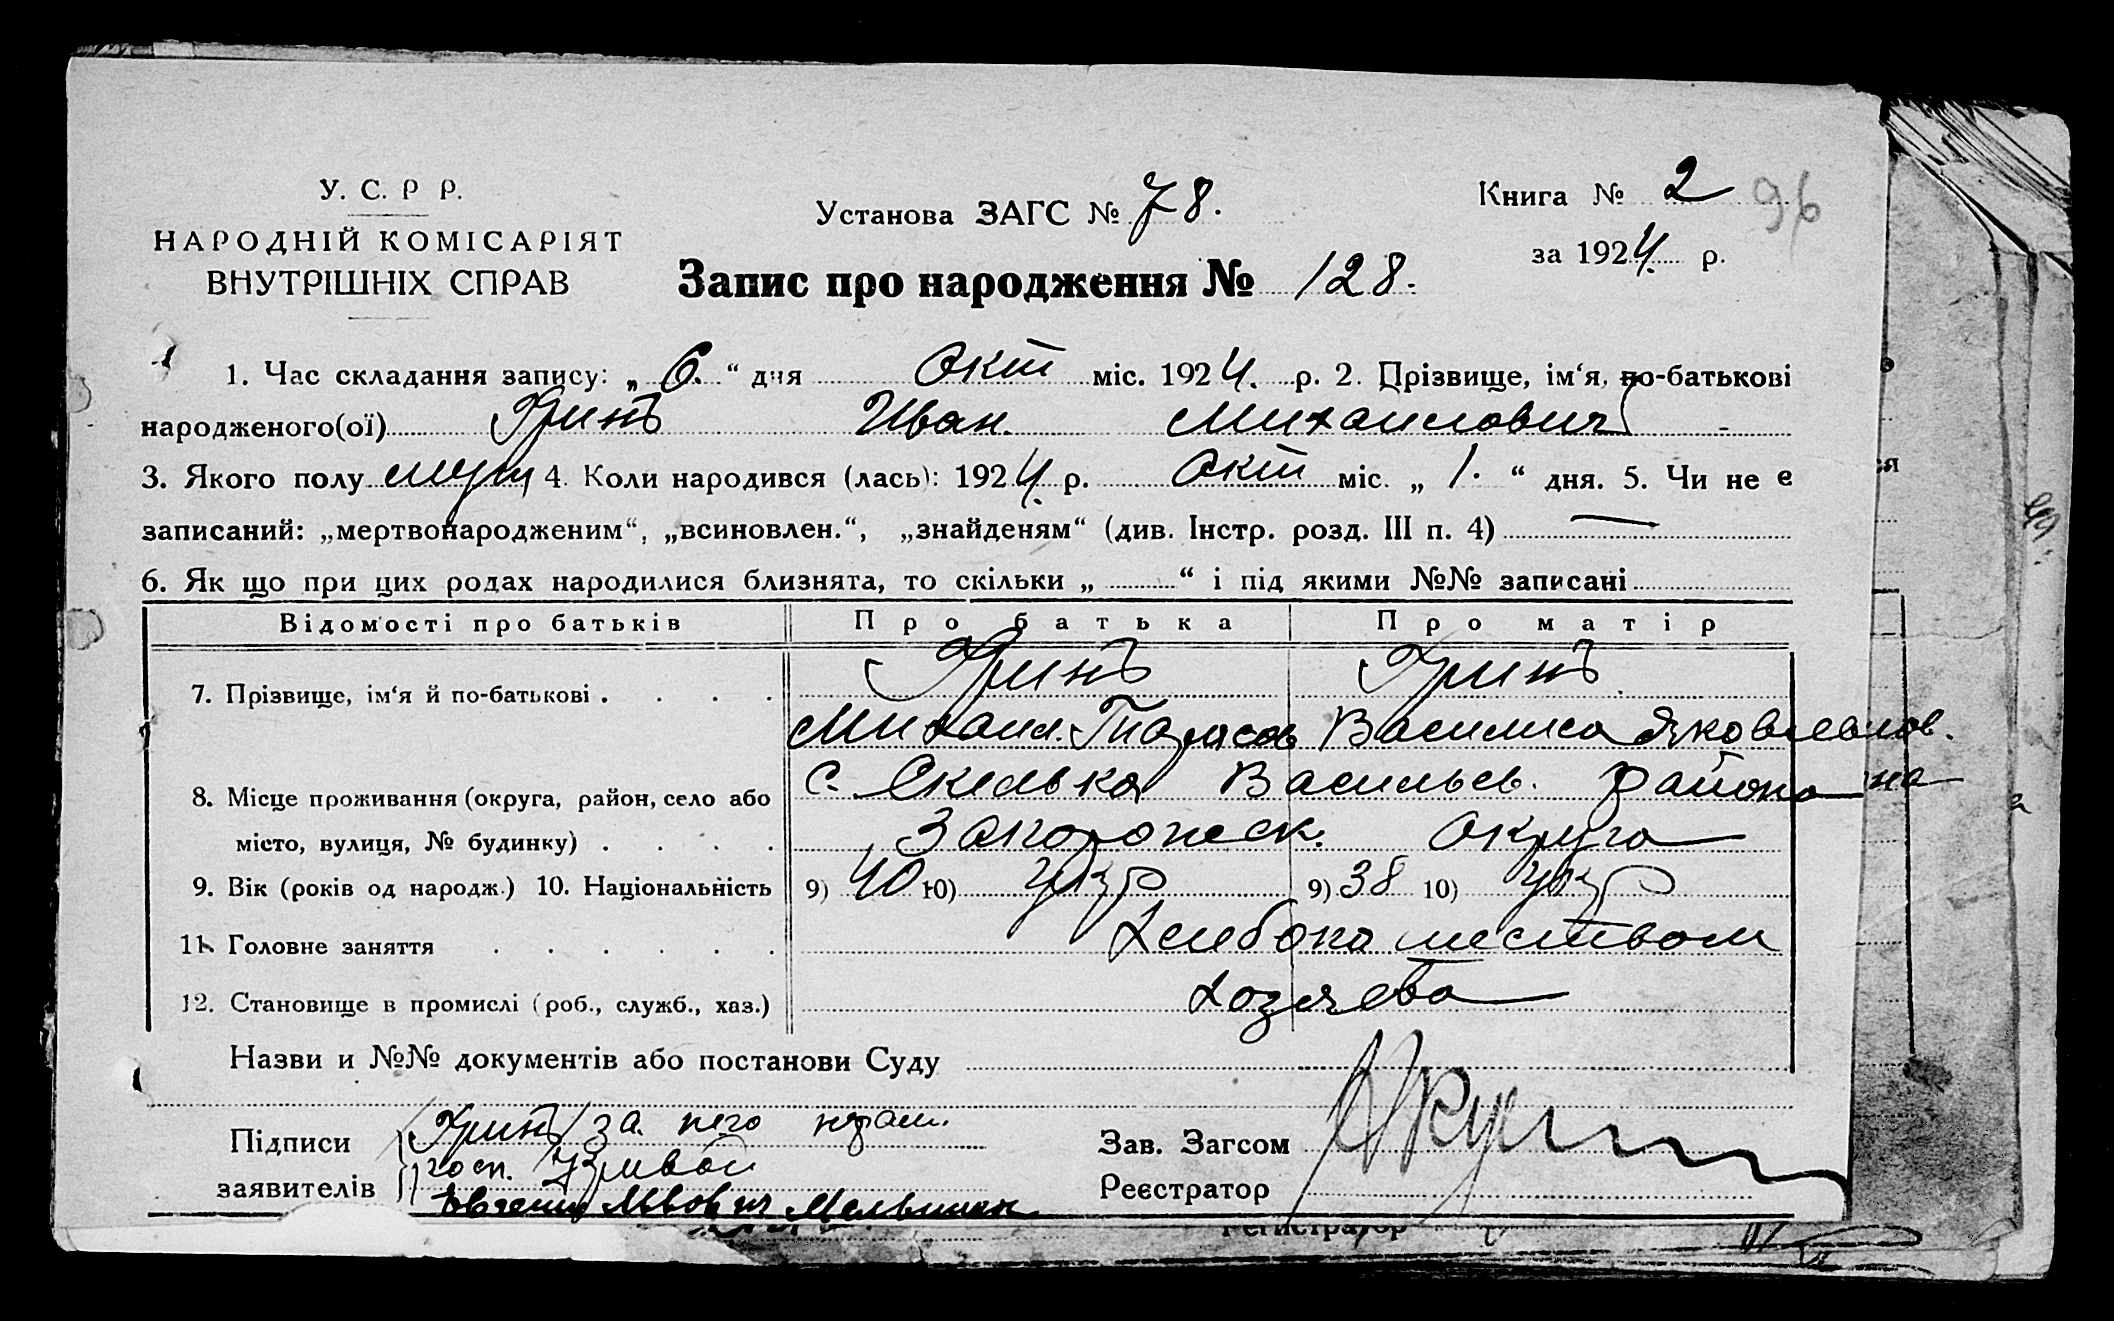 У. С. Р Р.
НАРОДНІЙ КОМІСАРІЯТ
ВНУТРІШНІХ СПРАВ
Установа ЗАГС № 78.
Книга № 2 96
за 1924 р.
Запис про народження № 128.
1. Час складання запису: „ 6. “ дня окт міс. 1924. р. 2. Прізвище, ім'я, по-батькові
народженого(ої) Гринь Иван. Михаилович
3. Якого полу муж 4. Коли народився (лась): 1924 р. окт міс. „ 1. “ дня. 5. Чи не є
записаний: „мертвонародженим“, „всиновлен.“, „знайденям“ (див. Інстр. розд. III п. 4) —
6. Як що при цих родах народилися близнята, то скільки „ “ і під якими №№ записані
Відомості про батьків Про батька Про матір
7. Прізвище, ім'я й по-батькові . . . . Гринь Гринь
Михаил. Василиса
8. Місце проживання (округа, район, село або с. Скелька Васильев. района
місто, вулиця, № будинку) . . . . Запорожск. округа
9. Вік (років од народж.) 10. Національність 9) 40 10) укр 9) 38 10) укр
11. Головне заняття . . . . . . Хлебопашеством
12. Становище в промислі (роб., служб., хаз.) хозяева
Назви и №№ документів або постанови Суду
Підписи Гринь за него
заявителів
Мельник
Зав. Загсом
Реєстратор
Регистратор